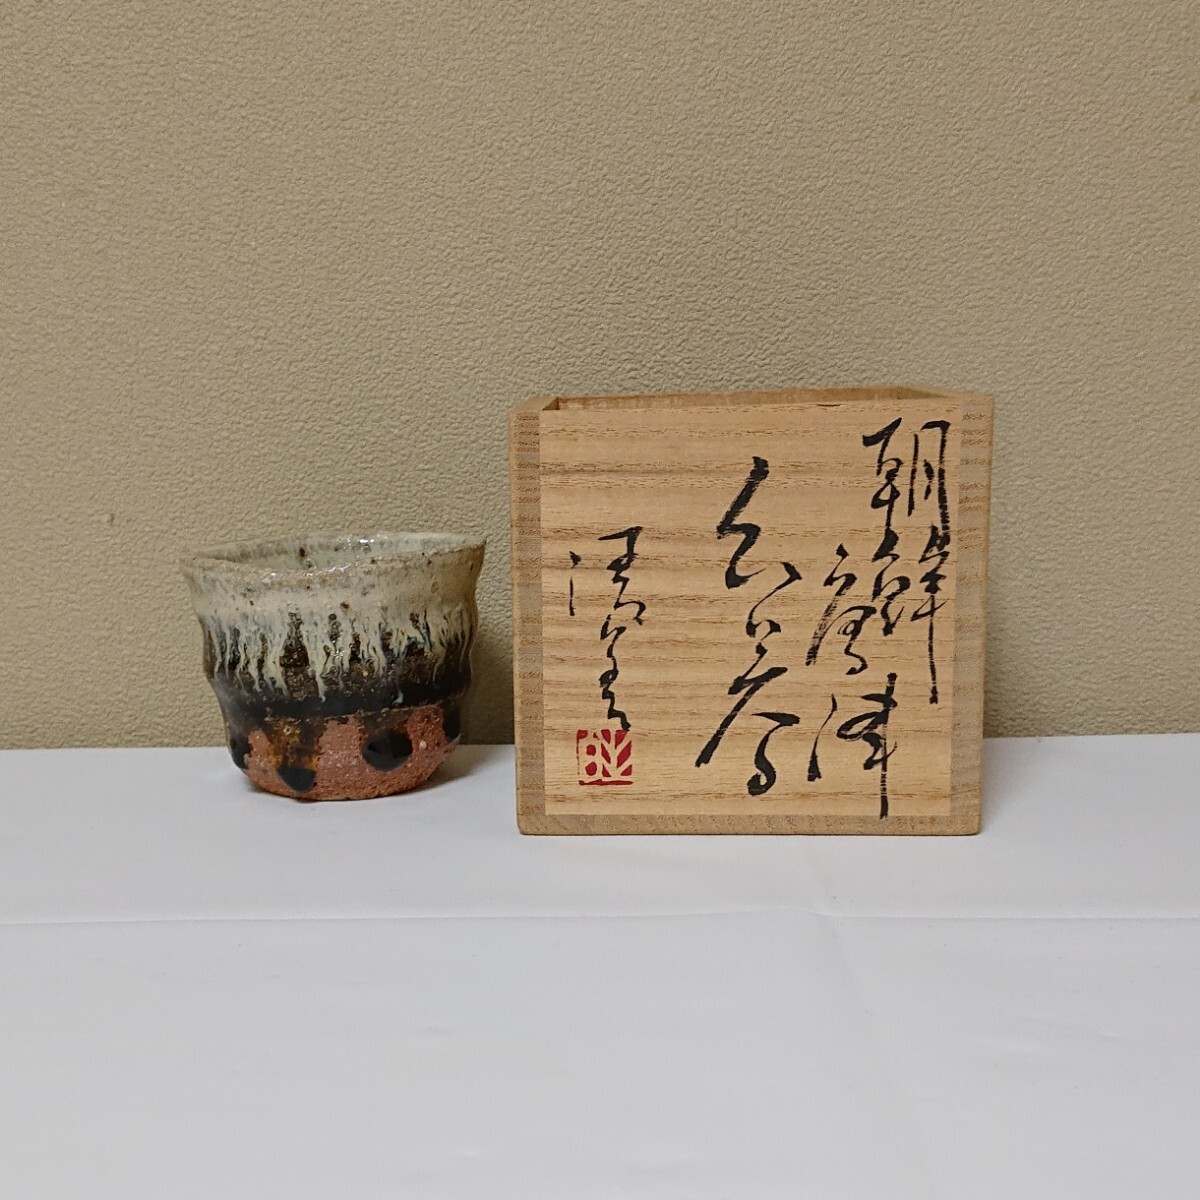 朝鮮
唐津
ぐい呑
清和